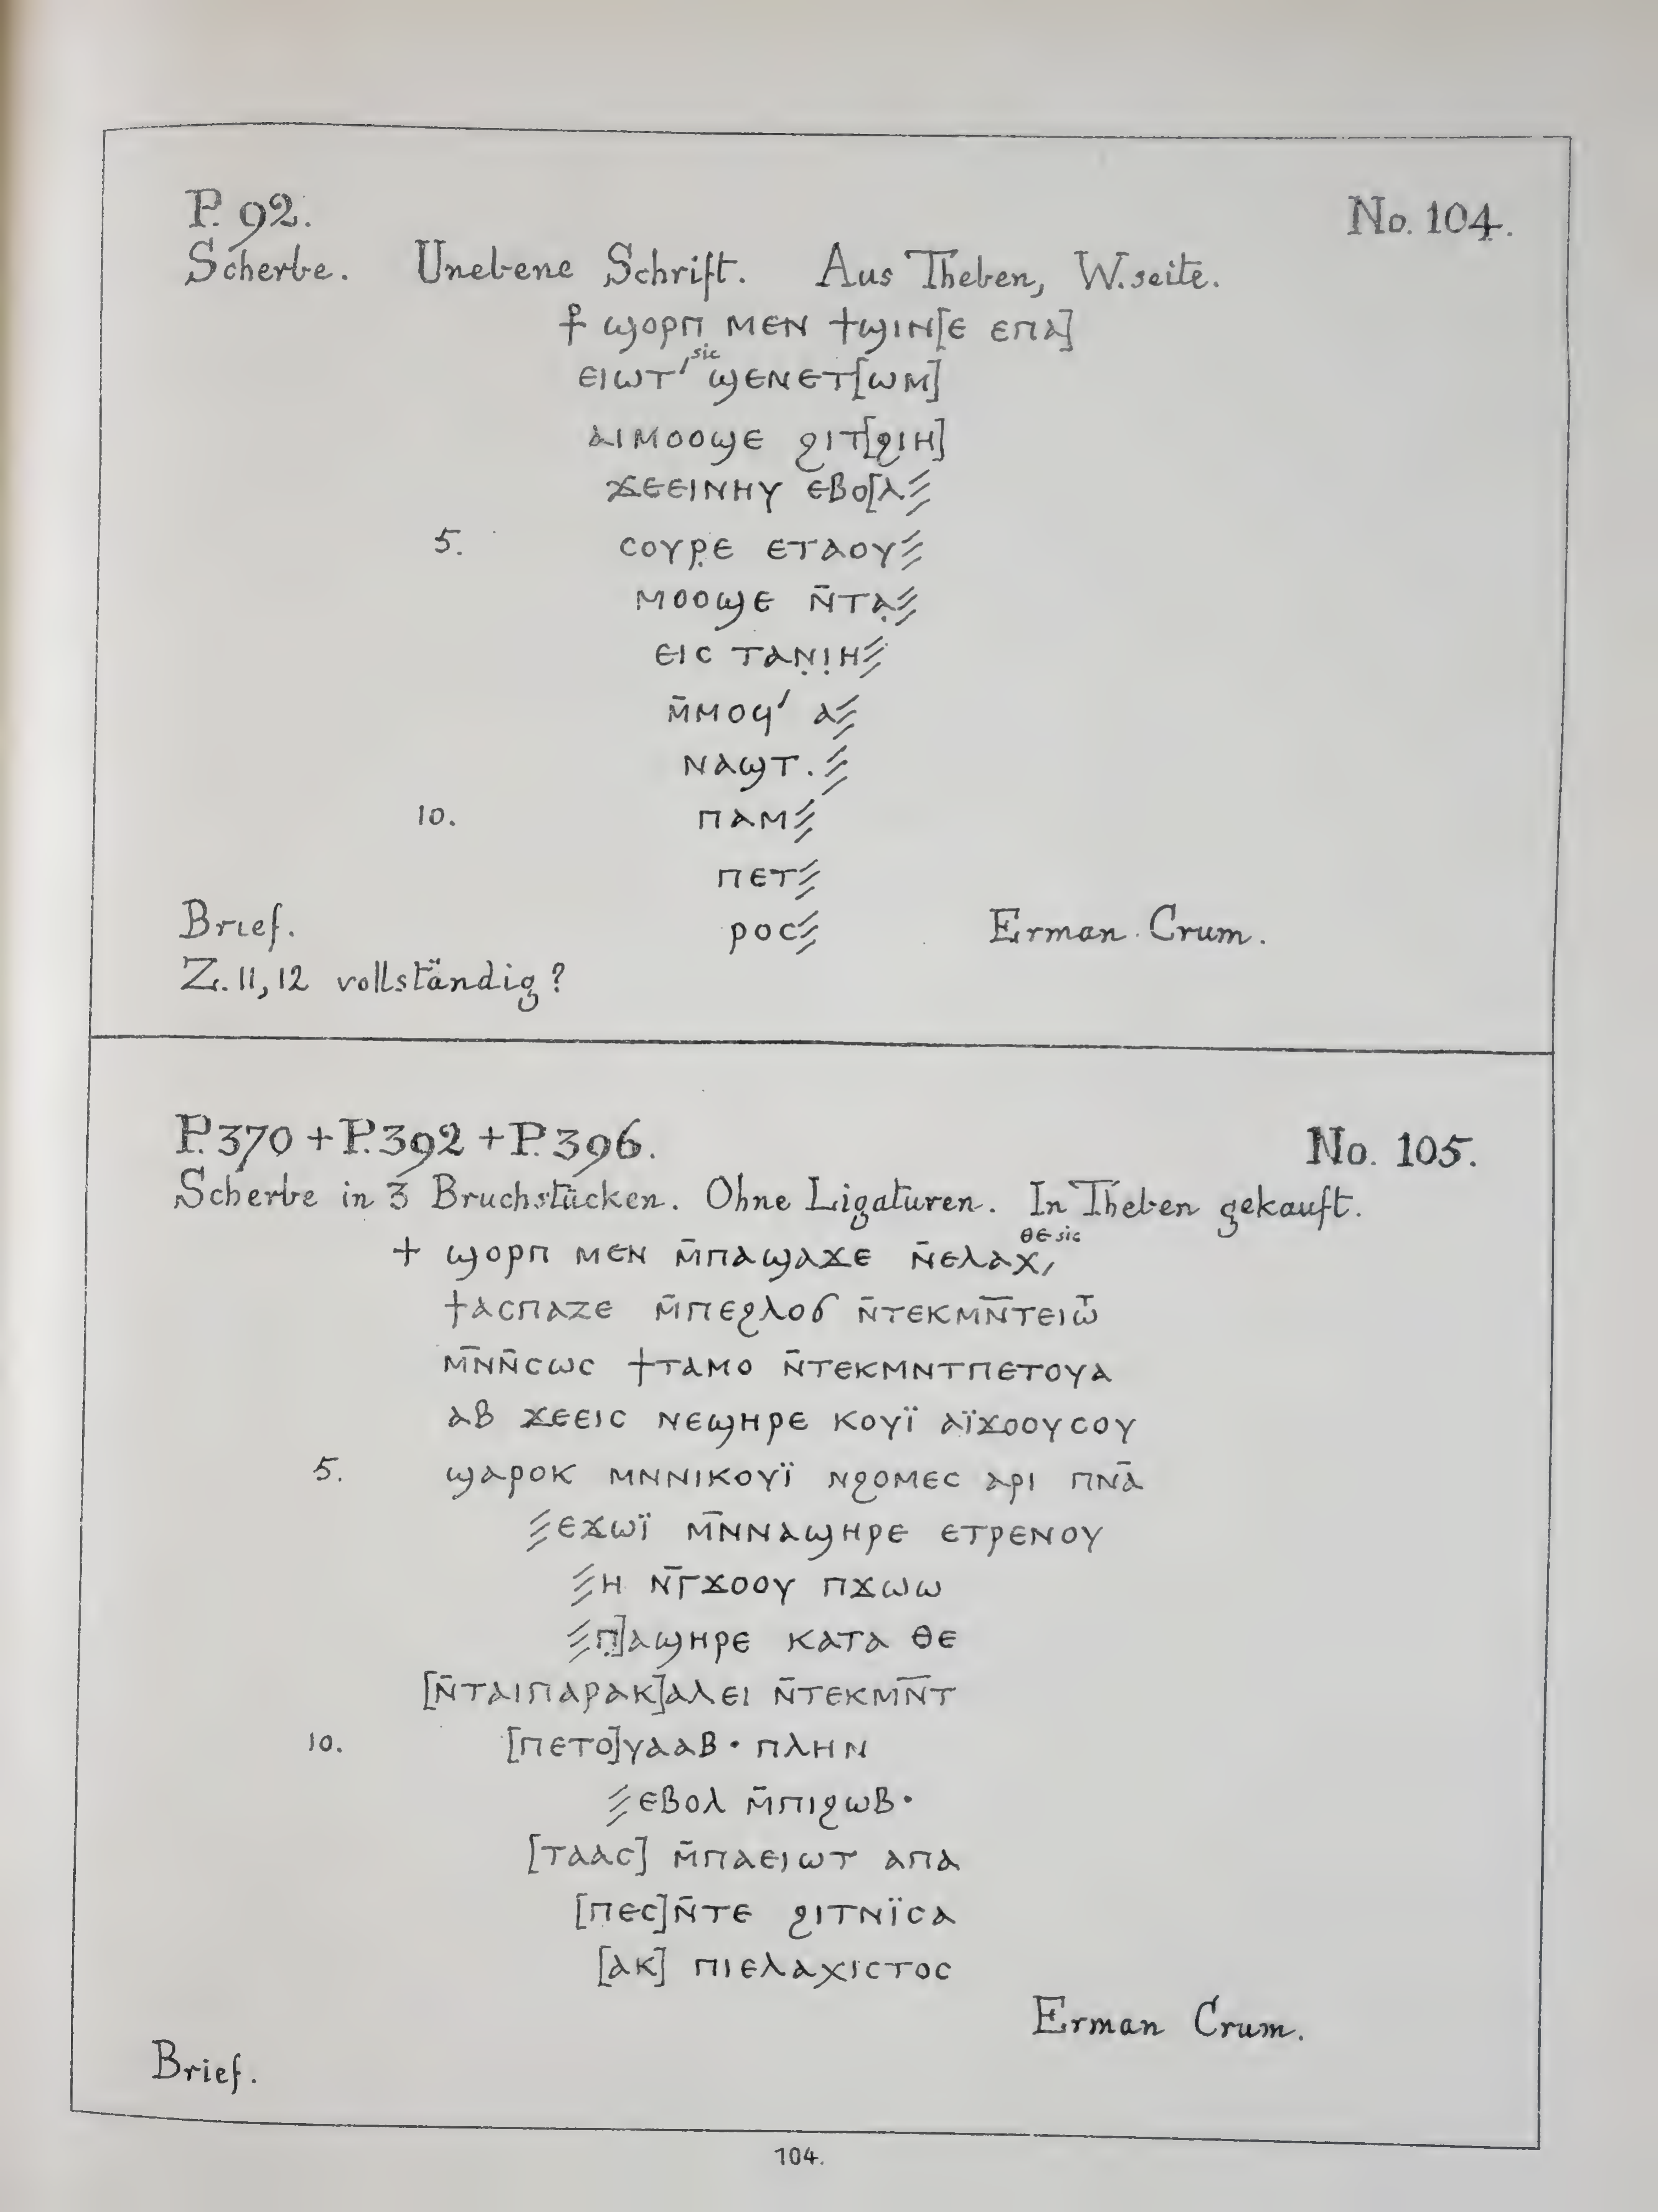 P. 92.
No. 104.
Scherbe. Unebene Schrift. Aus Theben, W.seite.
⳨ ϣⲟⲣⲡ ⲙⲉⲛ ϯϣⲓⲛ[ⲉ ⲉⲡⲁ]
sic
ⲉⲓⲱⲧ′ ϣⲉⲛⲉⲧ[ⲱⲙ]
ⲁⲓⲙⲟⲟϣⲉ ϩⲓⲧ[ϩⲓⲏ]
ϫⲉⲉⲓⲛⲏⲩ ⲉⲃⲟ[ⲗ⫽
5. ⲥⲟⲩⲣ̣ⲉ ⲉⲧⲁⲟⲩ⫽
ⲙⲟⲟϣⲉ ⲛ̄ⲧⲁ̣⫽
ⲉⲓⲥ ⲧⲁⲛ̣ⲓ̣ⲏ⫽
ⲙ̄ⲙⲟϥ′ ⲁ⫽
ⲛⲁϣⲧ.⫽
10. ⲡⲁⲙ⫽
ⲡⲉⲧ⫽
ⲣⲟⲥ⫽
Brief.
Erman Crum.
Z. 11, 12 vollständig?
P. 370 + P. 392 + P. 396.
No. 105.
Scherbe in 3 Bruchstücken. Ohne Ligaturen. In Theben gekauft.
ⲑⲉ sic
+ ϣⲟⲣⲡ ⲙⲉⲛ ⲙ̄ⲡⲁϣⲁϫⲉ ⲛ̄ⲉⲗⲁⲭ,
ϯⲁⲥⲡⲁⲍⲉ ⲙ̄ⲡⲉϩⲗⲟϭ ⲛ̄ⲧⲉⲕⲙⲛ̄ⲧⲉⲓⲱⲧ
ⲙⲛ̄ⲛ̄ⲥⲱⲥ ϯⲧⲁⲙⲟ ⲛ̄ⲧⲉⲕⲙⲛⲧⲡⲉⲧⲟⲩⲁ
ⲁⲃ ϫⲉⲉⲓⲥ ⲛⲉϣⲏⲣⲉ ⲕⲟⲩⲓ̈ ⲁⲓ̈ϫⲟⲟⲩⲥⲟⲩ
5. ϣⲁⲣⲟⲕ ⲙⲛⲛⲓⲕⲟⲩⲓ̈ ⲛϩⲟⲙⲉⲥ ⲁⲣⲓ ⲡⲛⲁ̄
⫽ⲉϫⲱⲓ̈ ⲙⲛ̄ⲛⲁϣⲏⲣⲉ ⲉⲧⲣⲉⲛⲟⲩ
⫽ⲏ ⲛ̄ⲅϫⲟⲟⲩ ⲡϫⲱⲱ
⫽ⲡ̣]ⲁϣⲏⲣⲉ ⲕⲁⲧⲁ ⲑⲉ
[ⲛ̄ⲧⲁⲓⲡⲁⲣⲁⲕ]ⲁⲗⲉⲓ ⲛ̄ⲧⲉⲕⲙⲛ̄ⲧ
10. [ⲡⲉⲧⲟ]ⲩⲁⲁⲃ · ⲡⲗⲏⲛ
⫽ⲉⲃⲟⲗ ⲙ̄ⲡⲓϩⲱⲃ ·
[ⲧⲁⲁⲥ] ⲙ̄ⲡⲁⲉⲓⲱⲧ ⲁⲡⲁ
[ⲡⲉⲥ]ⲛ̄ⲧⲉ ϩⲓⲧⲛⲓ̈ⲥⲁ
[ⲁⲕ] ⲡⲓⲉⲗⲁⲭⲓⲥⲧⲟⲥ
Erman Crum.
Brief.
104.